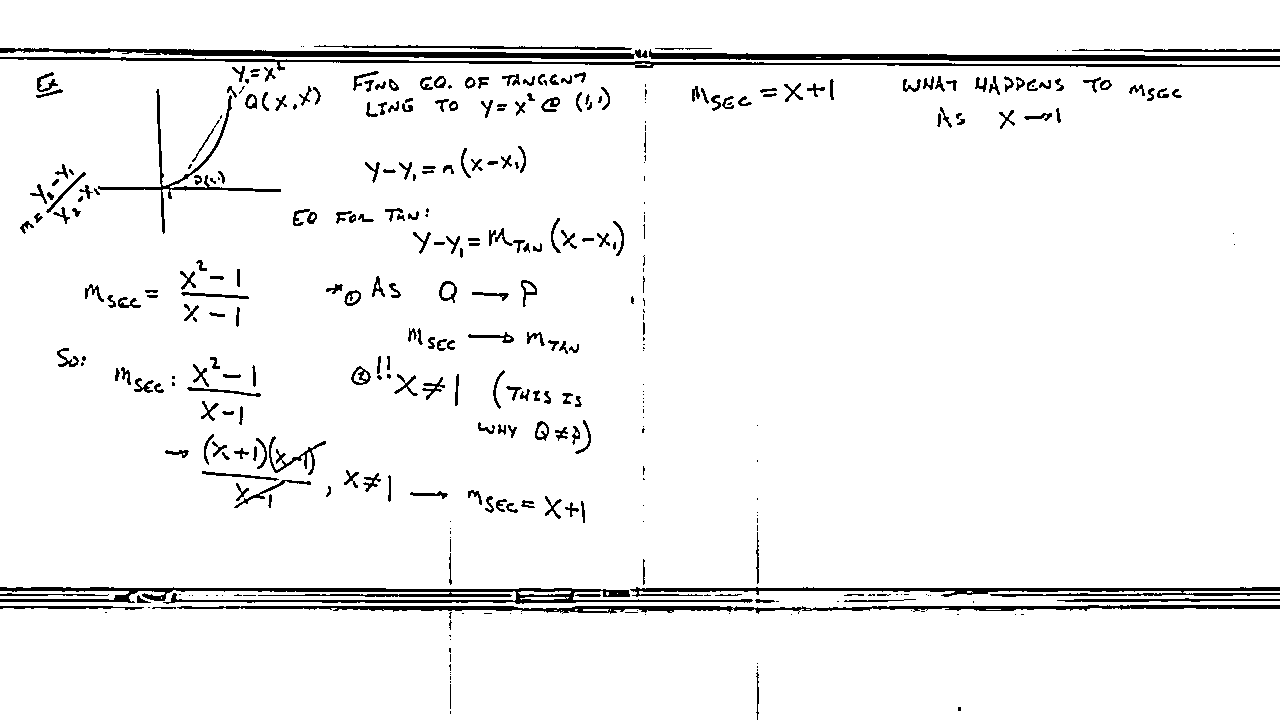 Ex
Y=X²
Q(X,X²)
P(1,1)
1
m=Y₂-Y₁/X₂-X₁
FIND EQ. OF TANGENT
LINE TO Y=X² @ (1,1)
Y-Y₁=m(X-X₁)
EQ FOR TAN:
Y-Y₁=m_TAN(X-X₁)
m_SEC = X²-1/X-1
→① AS Q → P
m_SEC → m_TAN
SO: m_SEC: X²-1/X-1
②!! X≠1 (THIS IS
WHY Q≠P)
→ (X+1)(X-1)/X-1, X≠1 → m_SEC = X+1
m_SEC = X+1
WHAT HAPPENS TO m_SEC
AS X→1